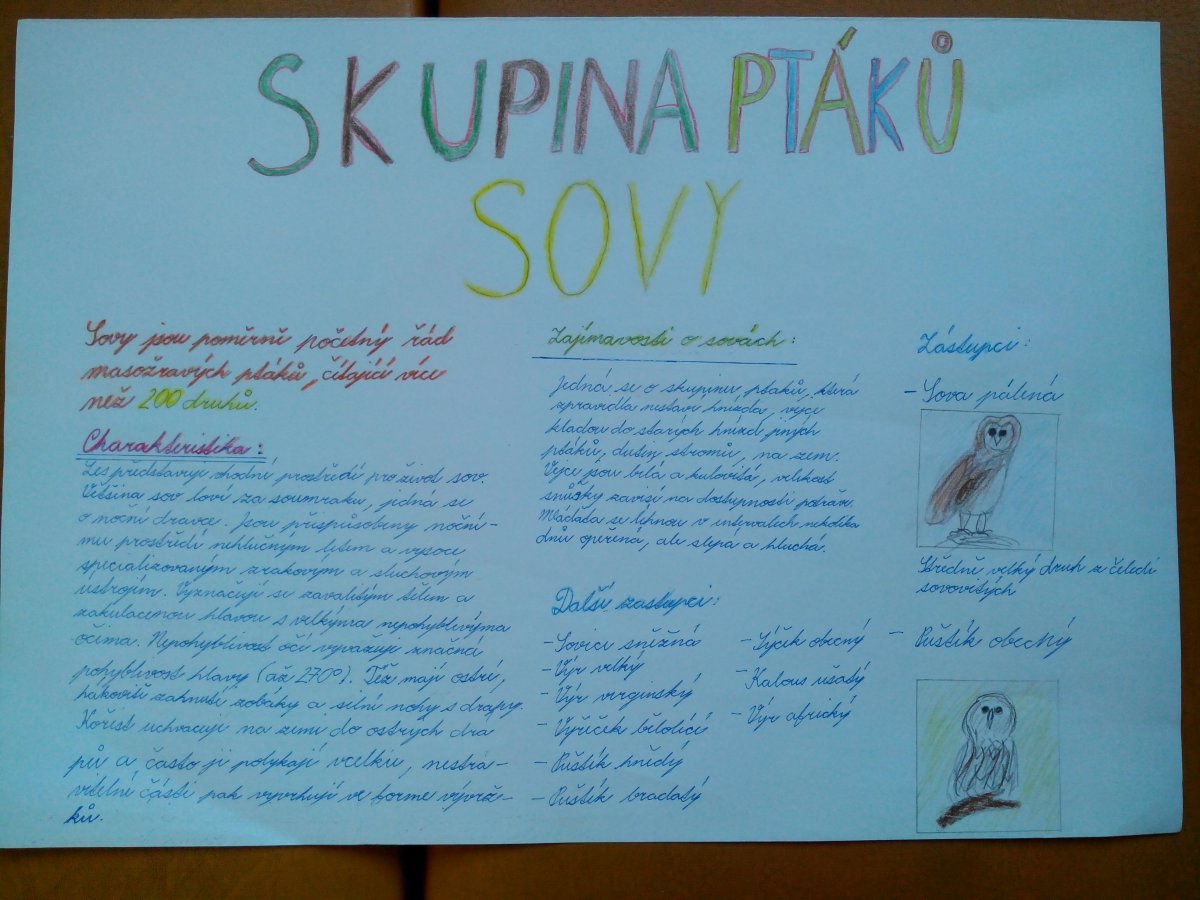 SKUPINA PTÁKŮ
SOVY
Sovy jsou poměrně početný řád
masožravých ptáků, čítající více
než 200 druhů.
Charakteristika:
Les představuje vhodní prostředí pro život sov.
Většina sov loví za soumraku, jedná se
o noční dravce. Jsou přispůsobeny noční-
mu prostředí nehlučným letem a vysoce
specializovaným zrakovým a sluchovým
ústrojím. Vyznačují se zavalitým tělem a
zakulacenou hlavou s velkýma nepohyblivýma
očima. Nepohyblivost očí vyvažuje značná
pohyblivost hlavy (až 270°). Též mají ostré,
hákovitě zahnuté zobáky a silné nohy s drápy.
Kořist uchvacují na zemi do ostrých drá
pů a často ji polykají vcelku, nestra-
vitelné části pak vyvrhují ve formě vývrž-
ků.
Zajímavosti o sovách:
Jedná se o skupinu ptáků, která
zpravidla nestaví hnízda, vejce
kladou do starých hnízd jiných
ptáků, dutin stromů, na zem.
Vejce jsou bílá a kulovitá, velikost
snůšky závisí na dostupnosti potravy.
Mláďata se líhnou v intervalech několika
dnů opeřená, ale slepá a hluchá.
Další zástupci:
- Sovice sněžná
- Výr velký
- Výr virginský
- Výreček bělolící
- Puštík hnědý
- Puštík bradatý
- Sýček obecný
- Kalous ušatý
- Výr africký
Zástupci:
- Sova pálená
Středně velký druh z čeledi
sovovitých
- Puštík obecný